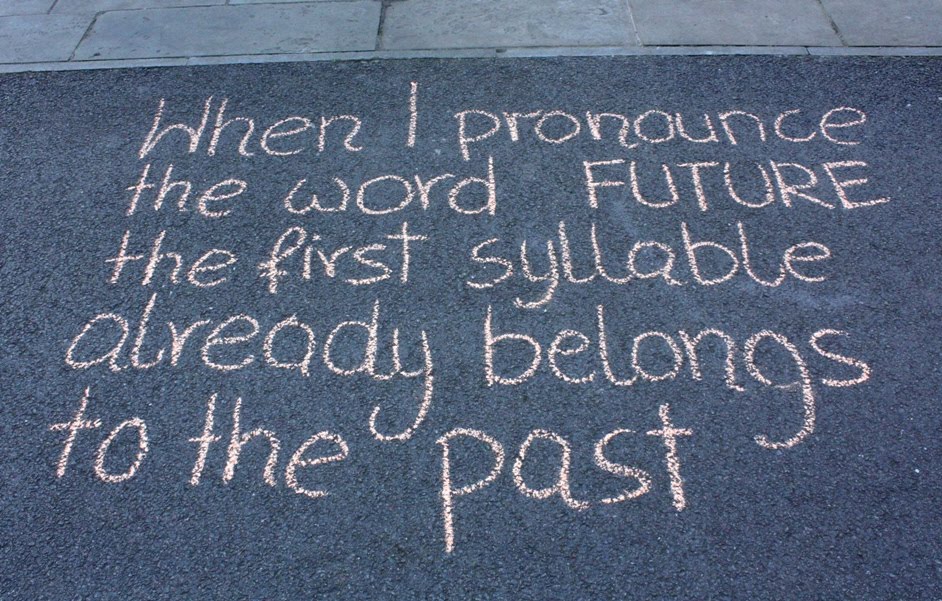 When I pronounce
the word FUTURE
the first syllable
already belongs
to the past